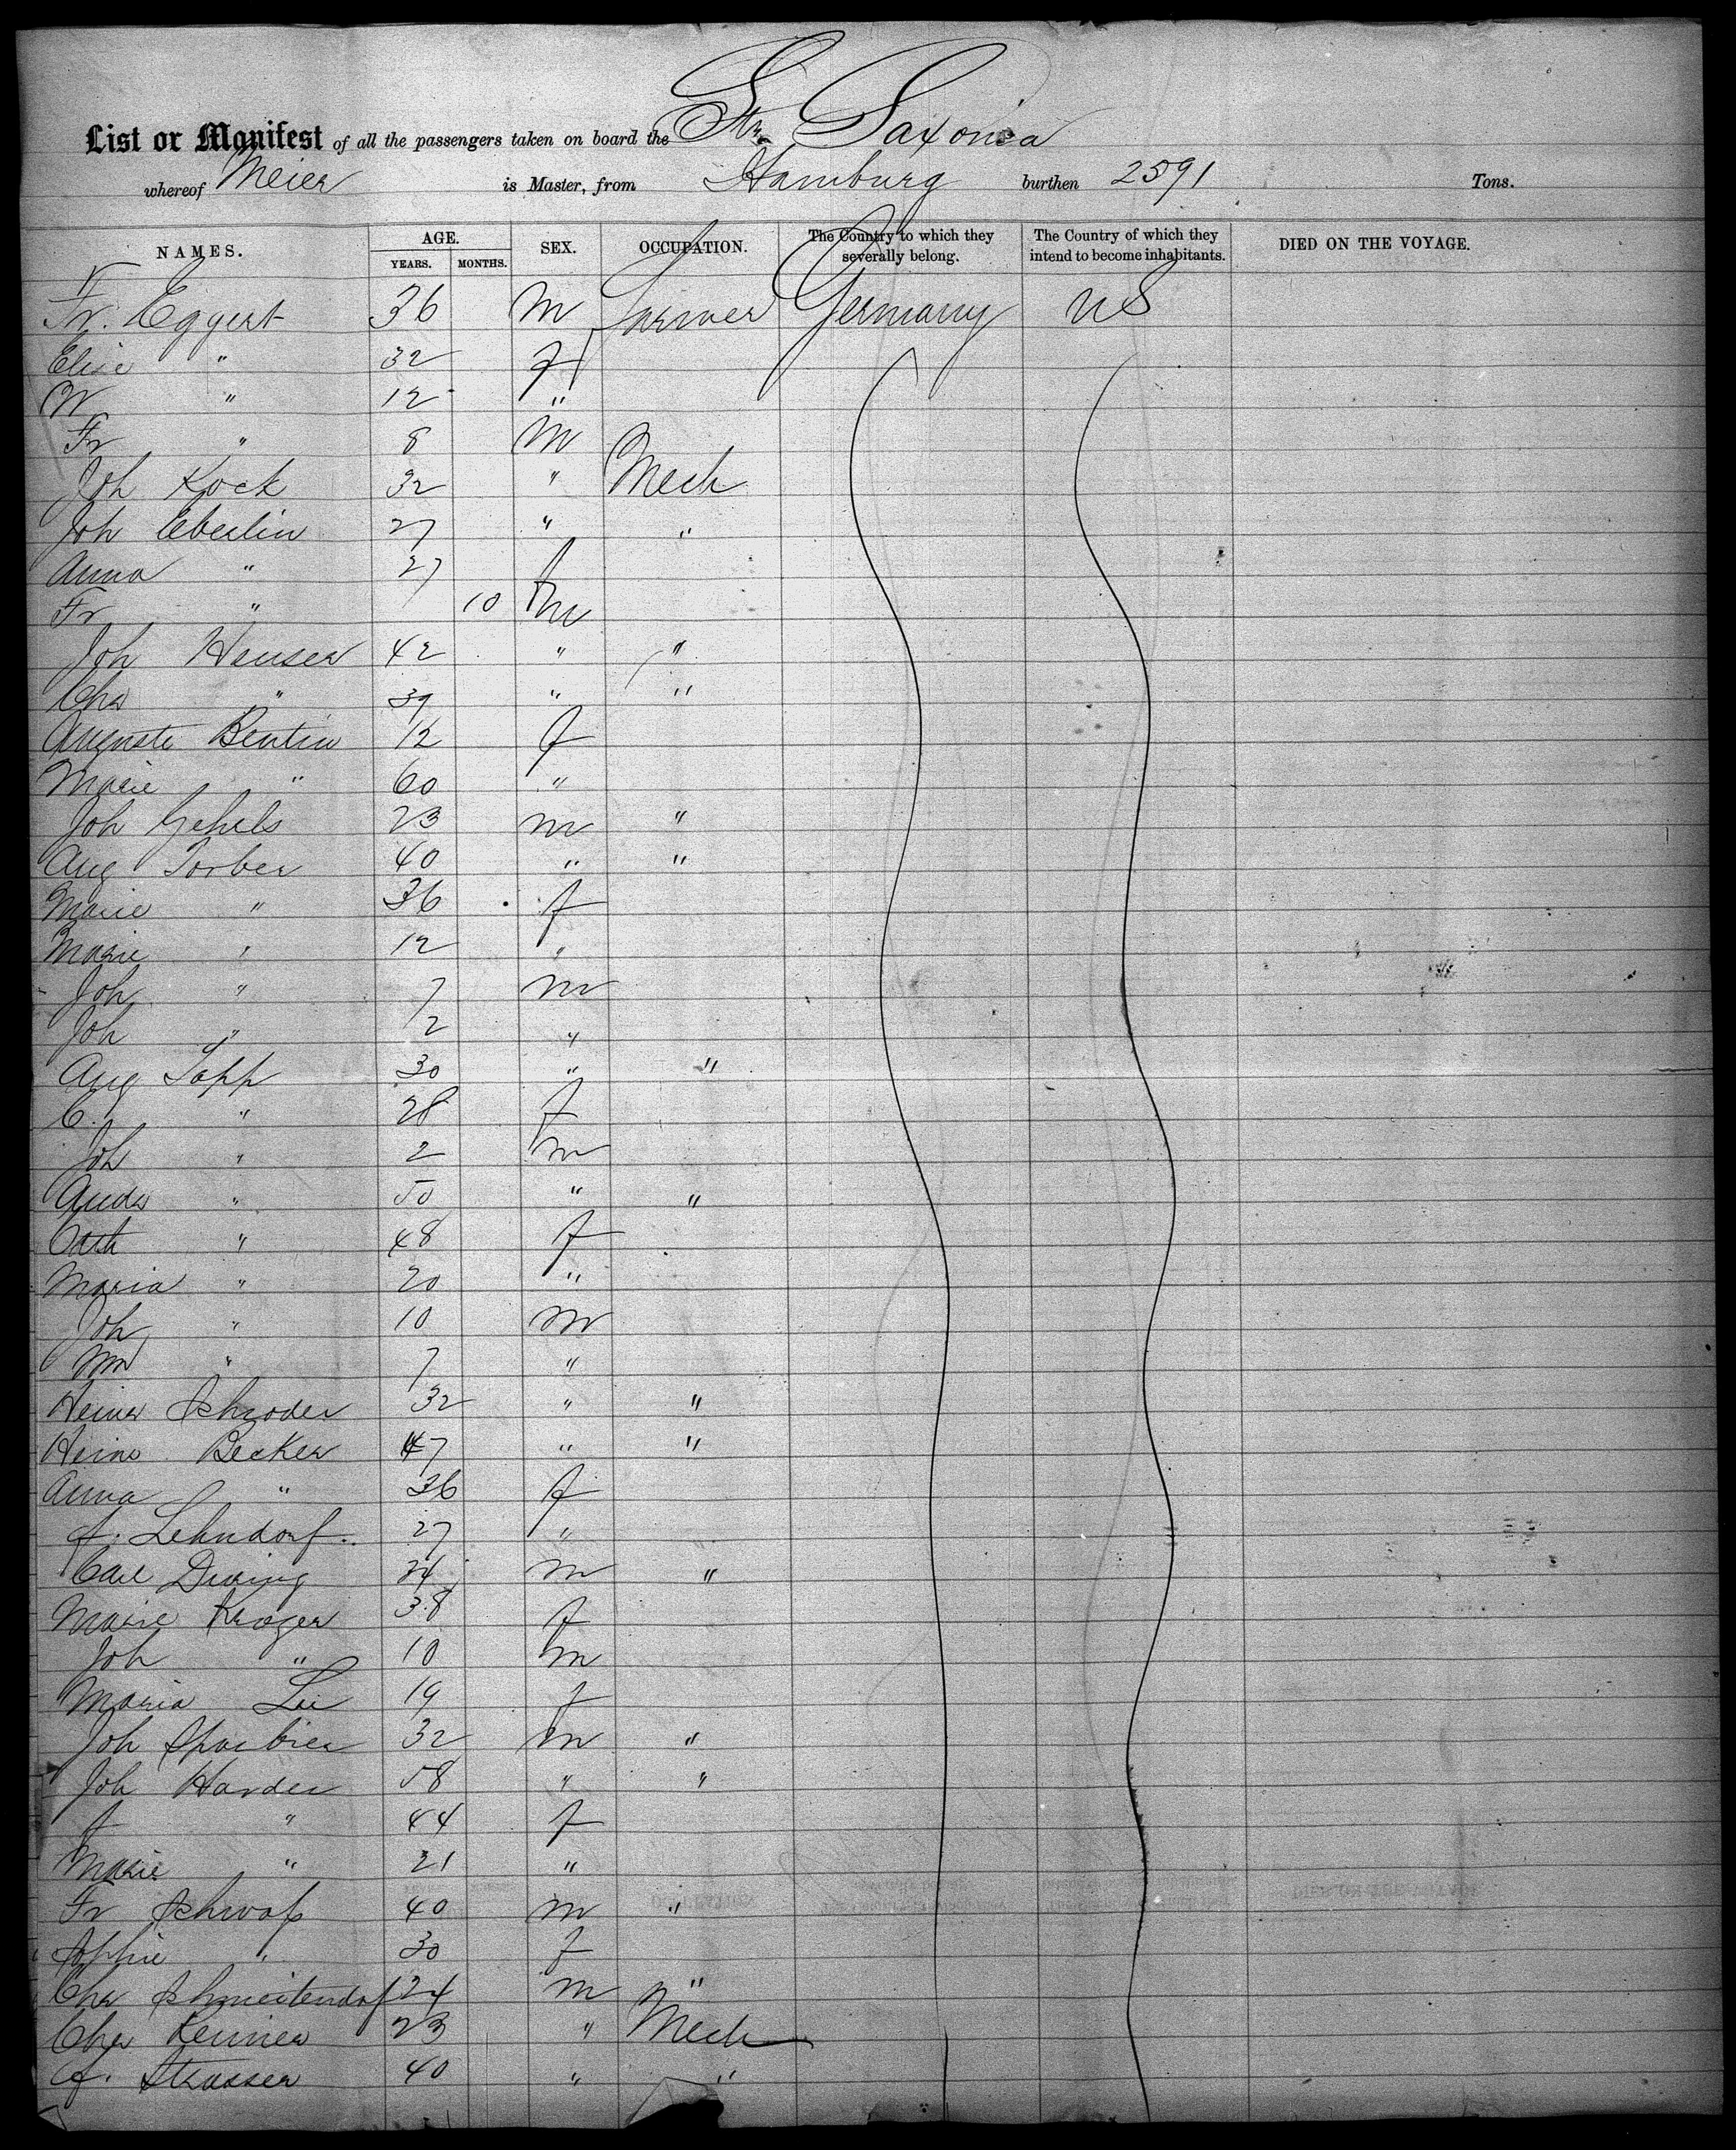 List or Manifest of all the passengers taken on board the Str. Saxonia
whereof Meier is Master, from Hamburg burthen 2591 Tons.
NAMES. AGE. YEARS. MONTHS. SEX. OCCUPATION. The Country to which they severally belong. The Country of which they intend to become inhabitants. DIED ON THE VOYAGE.
Fr. Eggert 36 M Farmer Germany US
Elise " 32 f
W " 12 "
Fr " 8 M
Joh Kock 32 " Mech
Joh Eberlin 27 " "
Anna " 27 f
Fr " 10 m
Joh Hauser 42 " "
Chs " 39 " "
Auguste Bentin 12 f
Marie " 60 "
Joh Gehels 23 m "
Aug Torber 40 " "
Marie " 36 f
Marie " 12 "
Joh " 7 m
Joh " 2 "
Aug Topp 30 " "
C. " 28 f
Joh " 2 m
Ands " 50 " "
Cath " 48 f
Maria " 20 "
Joh " 10 m
Wm " 7 "
Heinr Schroder 32 " "
Heinr Becker 47 " "
Anna " 36 f
f. Lehndorf 27 "
Carl During 34 m "
Marie Kroger 38 f
Joh " 10 m
Maria 19 f
Joh 32 m "
Joh Harder 58 " "
f " 44 f
Marie " 21 "
Fr Schwass 40 m "
Sophie " 30 f
Chr Schmeitendorf 24 m "
Chr Renner 23 " Mech
Strasser 40 " "